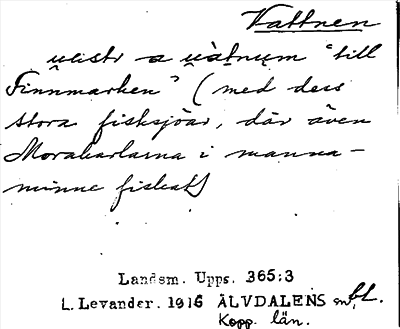 Vattnen
u̯estr a u̯àtnum "till
Finnmarken" (med dess
stora fisksjöar, där även
Morakarlarna i manna-
minne fiskat)
Landsm. Upps. 365:3
L. Levander. 1916 ÄLVDALENS
Kopp. län.